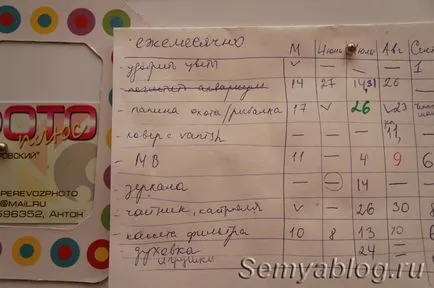 ежемесячно М Июнь Июль Авг Сен
- удобрить цветы ✓ — — — 1
- почистить аквариум 14 27 14,31 26
- папина охота/рыбалка 17 ✓ 26 ✓23
- ковер с vanish — — — 11, —
- МВ 11 — 4 9 6
- зеркала — — 14 — —
- чайник, кастрюля ✓ — 26 30 8
- кассета фильтра 10 8 13 10 6
духовка 24 — —
игрушки
ФОТО
плюс
РОВСКИЙ"
PEREVOZPHOTO
@MAIL.RU
596352, АНТОН
Semyablog.ru